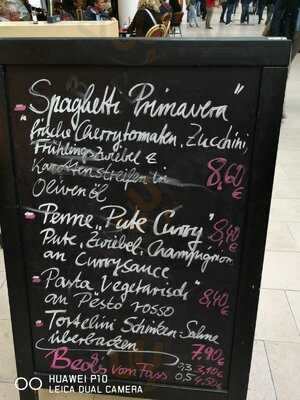 „Spaghetti Primavera"
frische Cherrytomaten, Zucchini,
Frühlingszwiebel &
Karottenstreifen in 8,60 €
Olivenöl
Penne „Pute Curry" 8,40 €
Pute, Zwiebel, Champignon
an Currysauce
Pasta „Vegetarisch"
an Pesto rosso 8,40 €
Tortelini Schinken-Sahne
überbacken 7,90 €
Beck's vom Fass 0,3 3,10 €
0,5 4,50 €
HUAWEI P10
LEICA DUAL CAMERA